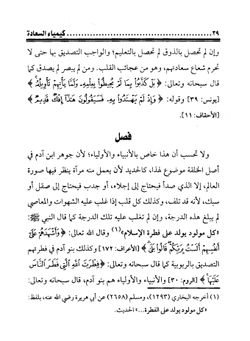 ٢٩ كيمياء السعادة
وإن لم تحصل بالذوق لم تحصل بالتعليم؛ والواجب التصديق بها حتى لا
تحرم شعاع سعادتهم، وهو من عجائب القلب. ومن لم يبصر لم يصدق كما
قال سبحانه وتعالى: ﴿بَلْ كَذَّبُوا بِمَا لَمْ يُحِيطُوا بِعِلْمِهِ وَلَمَّا يَأْتِهِمْ تَأْوِيلُهُ﴾
[يونس: ٣٩] وقوله: ﴿وَإِذْ لَمْ يَهْتَدُوا بِهِ فَسَيَقُولُونَ هَذَا إِفْكٌ قَدِيمٌ﴾
[الأحقاف: ١١].
فصل
ولا تحسب أن هذا خاص بالأنبياء والأولياء؛ لأن جوهر ابن آدم في
أصل الخلقة موضوع لهذا، كالحديد لأن يعمل منه مرآة ينظر فيها صورة
العالم، إلا الذي صدأ فيحتاج إلى إجلاء، أو جدب فيحتاج إلى صقل أو
سبك، لأنه قد تلف، وكذلك كل قلب إذا غلب عليه الشهوات والمعاصي
لم يبلغ هذه الدرجة، وإن لم تغلب عليه تلك الدرجة كما قال النبي ﷺ:
«كل مولود يولد على فطرة الإسلام»(١) وقال الله تعالى: ﴿وَأَشْهَدَهُمْ عَلَى
أَنفُسِهِمْ أَلَسْتُ بِرَبِّكُمْ قَالُوا بَلَى﴾ [الأعراف: ١٧٢] وكذلك بنو آدم في فطرتهم
التصديق بالربوبية كما قال سبحانه وتعالى: ﴿فِطْرَتَ اللَّهِ الَّتِي فَطَرَ النَّاسَ
عَلَيْهَا﴾ [الروم: ٣٠] والأنبياء والأولياء هم بنو آدم، قال سبحانه وتعالى:
(١) أخرجه البخاري (١٢٩٣)، ومسلم (٢٦٥٨) عن أبي هريرة رضي الله عنه، بلفظ:
«كل مولود يولد على الفطرة...» الحديث.